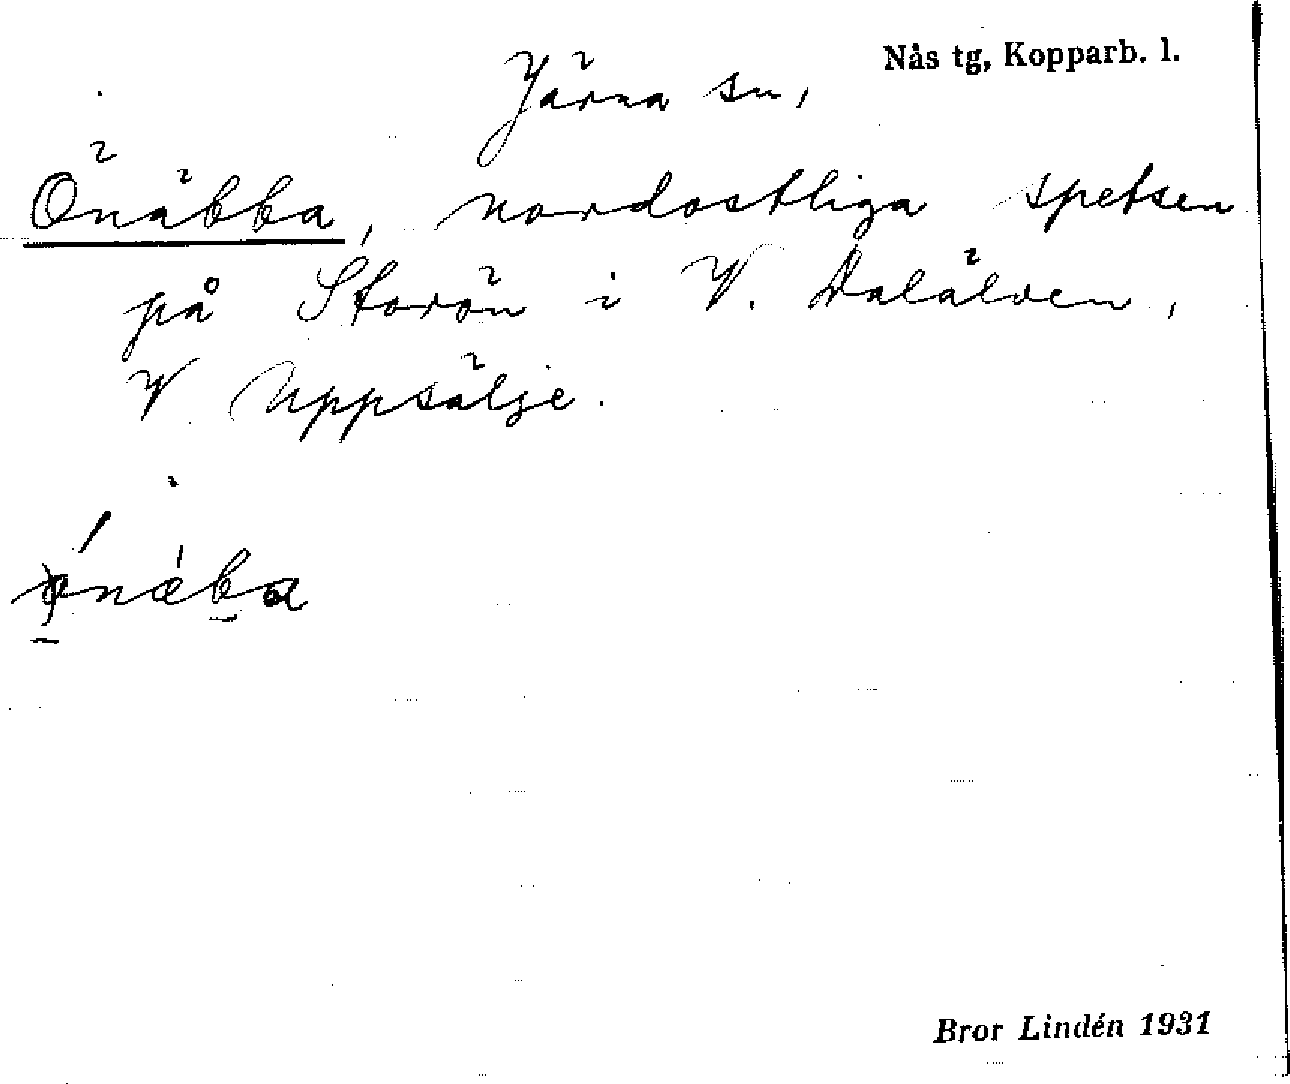 Nås tg, Kopparb. l.
Järna sn,
Önäbba, nordostliga spetsen
på Storön i V. Dalälven,
V Uppsälje.
Bror Lindén 1931